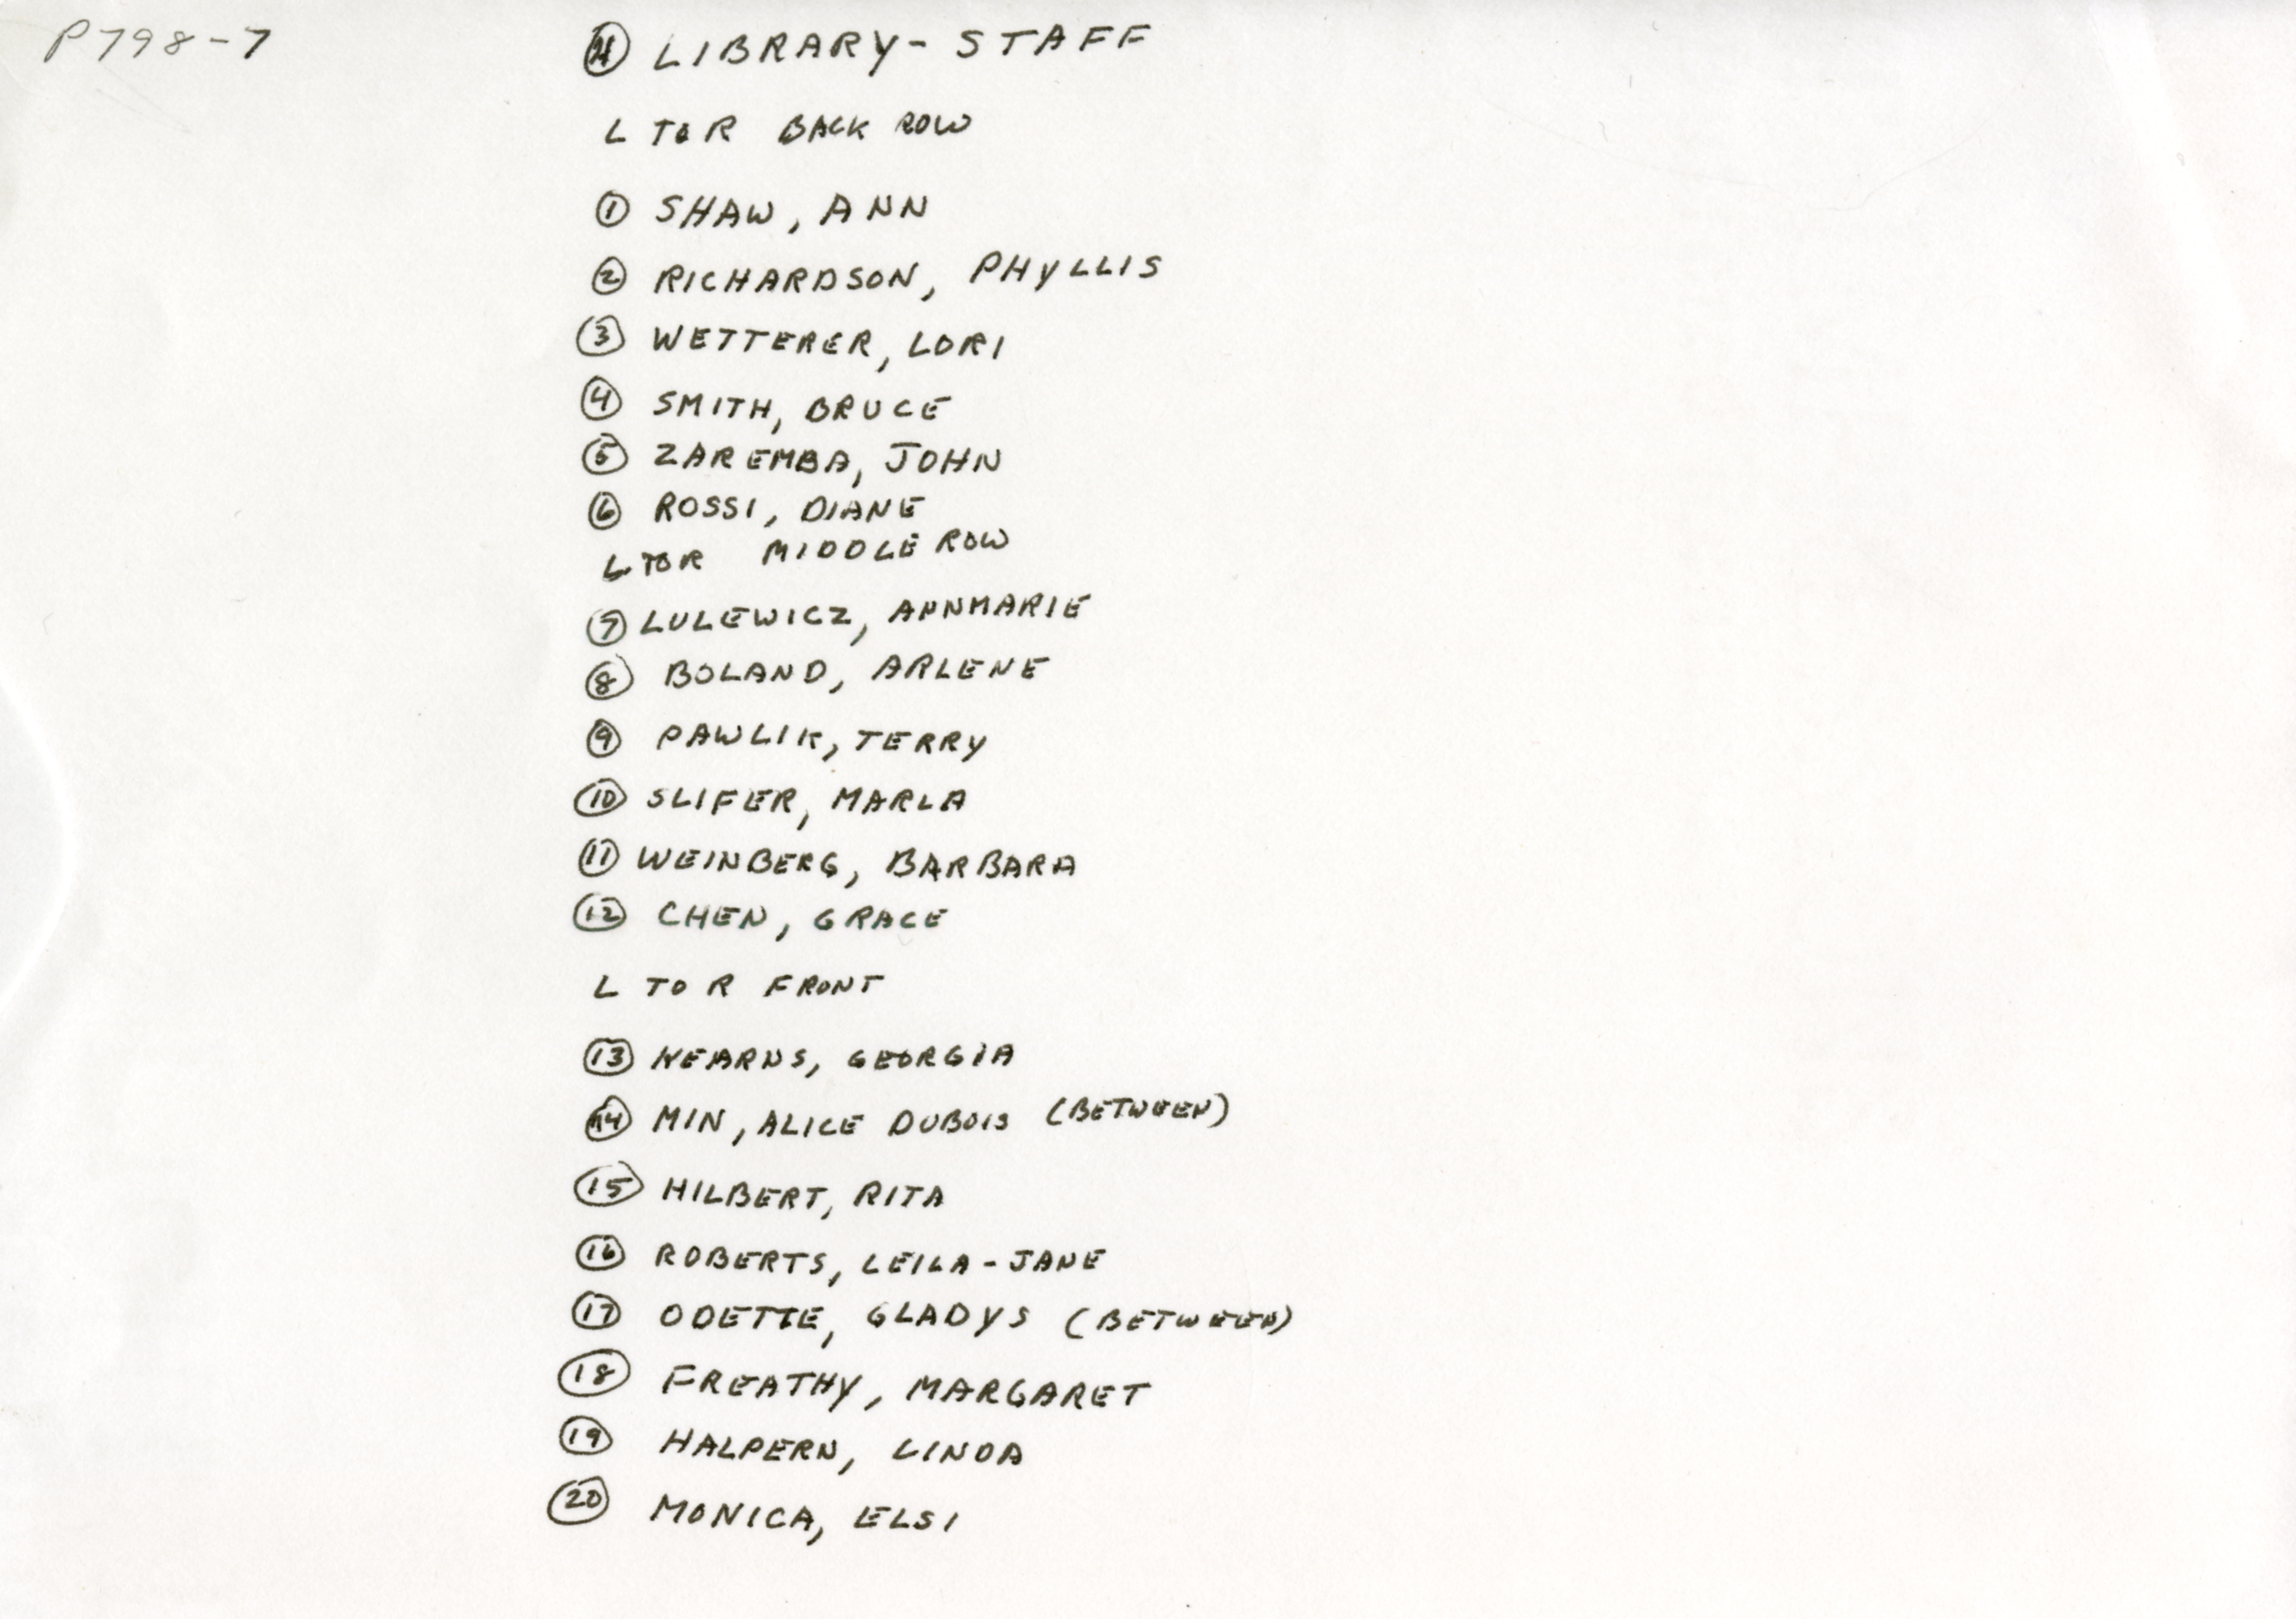 P798-7
④ LIBRARY - STAFF
L TO R BACK ROW
① SHAW, ANN
② RICHARDSON, PHYLLIS
③ WETTERER, LORI
④ SMITH, BRUCE
⑤ ZAREMBA, JOHN
⑥ ROSSI, DIANE
L TO R MIDDLE ROW
⑦ LULEWICZ, ANNMARIE
⑧ BOLAND, ARLENE
⑨ PAWLIK, TERRY
⑩ SLIFER, MARLA
⑪ WEINBERG, BARBARA
⑫ CHEN, GRACE
L TO R FRONT
⑬ KEARNS, GEORGIA
⑭ MIN, ALICE DUBOIS (BETWEEN)
⑮ HILBERT, RITA
⑯ ROBERTS, LEILA-JANE
⑰ ODETTE, GLADYS (BETWEEN)
⑱ FREATHY, MARGARET
⑲ HALPERN, LINDA
⑳ MONICA, ELSI